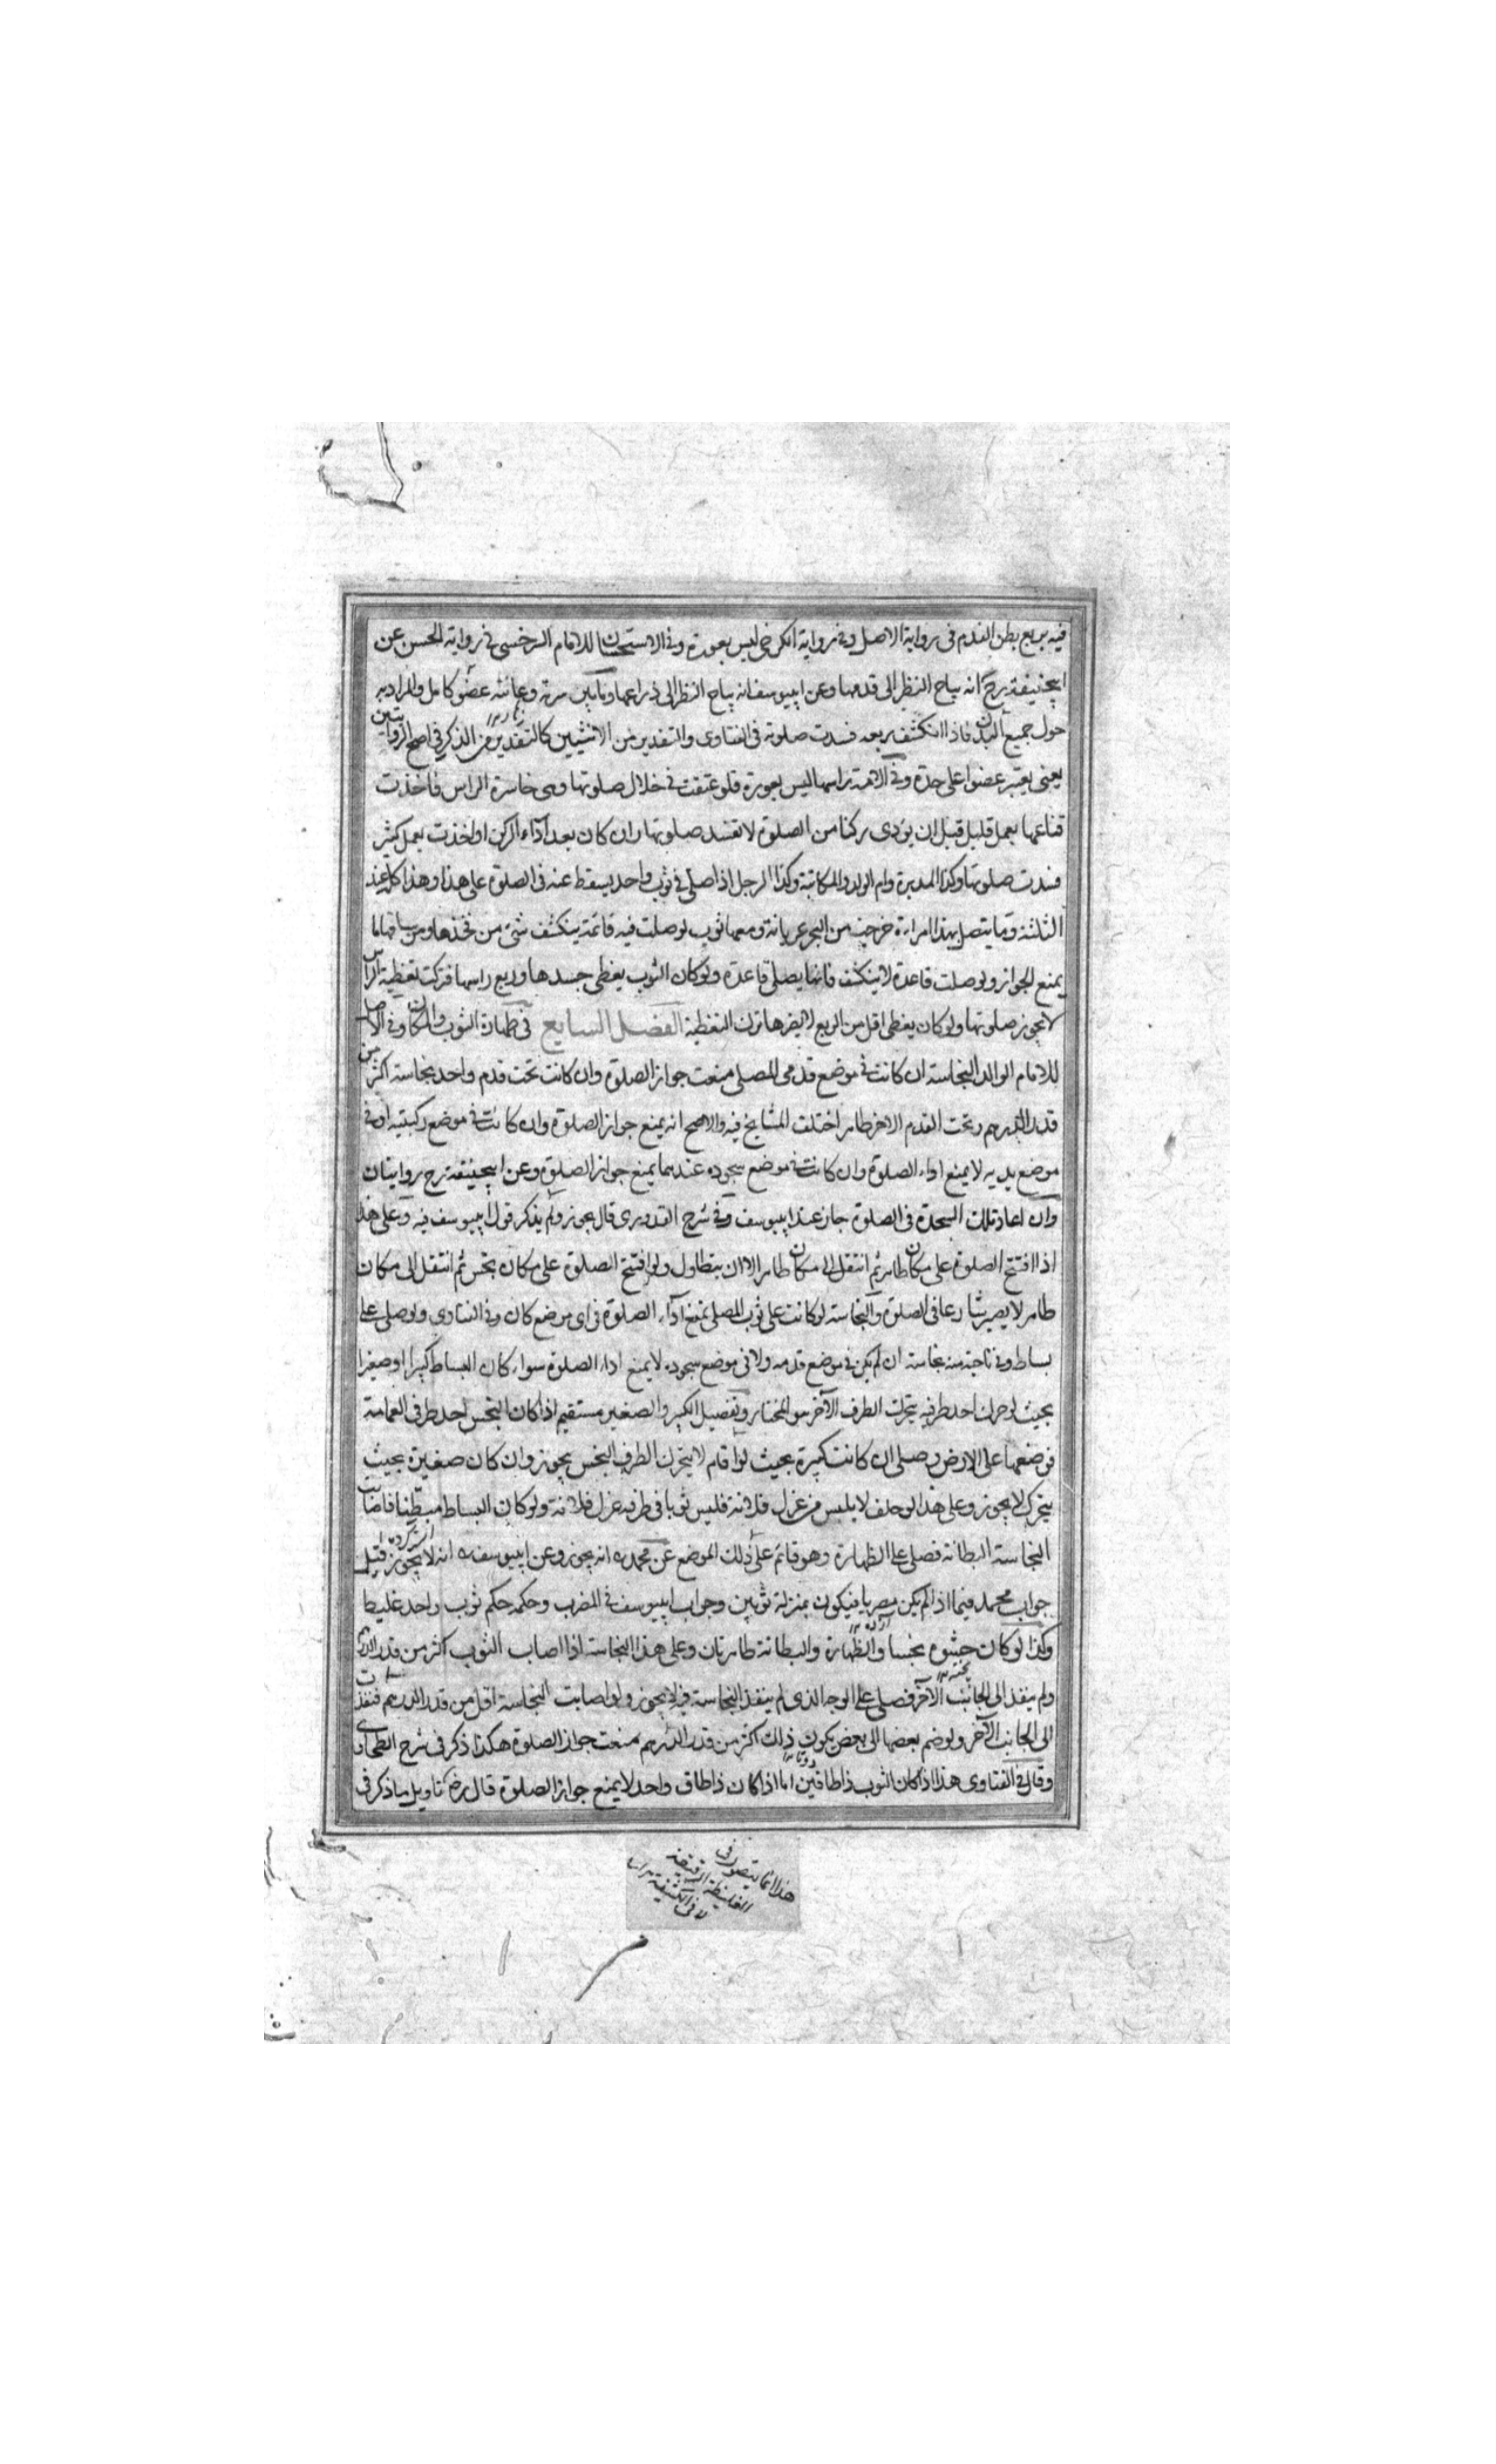 فيه بربع بطن القدم فى رواية الاصل وفى رواية الكرخى ليس بعورة وفى الاستحسان للامام السرخسى فى رواية الحسن عن
ابيحنيفة رح انه يباح النظر الى قدمها وعن ابييوسف انه يباح النظر الى ذراعها وما بين سرة وعانته عضو كامل والمراد به
حول جميع البدن فاذا انكشف ربعه فسدت صلوته فى الفتاوى والتقدير من الانثيين كالتقدير من الذكر فى اصح الروايتين
يعنى يعتبر عضوا على حدة وفى الامة راسها ليس بعورة فلو عتقت فى خلال صلوتها وهى حاسرة الراس فاخذت
قناعها بعمل قليل قبل ان يؤدى ركنا من الصلوة لا تفسد صلوتها وان كان بعد اداء الركن او اخذت بعمل كثير
فسدت صلوتها وكذا المدبرة وام الولد والمكاتبة وكذا الرجل اذا صلى فى ثوب واحد يسقط عنه فى الصلوة على هذا وهذا كله عند
الثلثة وما يتصل بهذا امراءة خرجت من البحر عريانة ومعها ثوب لو صلت فيه قائمة ينكشف شئ من فخذها ومن ساقها ما
يمنع الجواز ولو صلت قاعدة لا ينكشف فانها يصلى قاعدة ولو كان الثوب يغطى جسدها وربع راسها فتركت تغطية الراس
لا يجوز صلوتها ولو كان يغطى اقل من الربع لا يضرها ترك التغطية الفصل السابع فى طهارة الثوب والمكان وفى الاصل
للامام الوالد النجاسة ان كانت فى موضع قدمى المصلى منعت جواز الصلوة وان كانت تحت قدم واحد نجاسة اكثر من
قدر الدرهم وتحت القدم الاخر طاهر اختلف المشايخ فيه والاصح انه يمنع جواز الصلوة وان كانت فى موضع ركبتيه او فى
موضع يديه لا يمنع اداء الصلوة وان كانت فى موضع سجوده عندهما يمنع جواز الصلوة وعن ابيحنيفة رح روايتان
وان اعاد تلك السجدة فى الصلوة جاز عند ابييوسف وفى شرح القدورى قال يجوز ولم يذكر قول ابييوسف فيه وعلى هذا
اذا افتتح الصلوة على مكان طاهر ثم انتقل الى مكان طاهر الا ان يتطاول ولو افتتح الصلوة على مكان نجس ثم انتقل الى مكان
طاهر لا يصير شارعا فى الصلوة والنجاسة لو كانت على ثوب المصلى يمنع اداء الصلوة فى اى موضع كان وفى الفتاوى ولو صلى على
بساط وفى ناحية منه نجاسة ان لم يكن فى موضع قدمه ولا فى موضع سجوده لا يمنع اداء الصلوة سواء كان البساط كبيرا او صغيرا
بحيث لو حرك احد طرفيه يتحرك الطرف الآخر هو المختار وتفصيل الكبير والصغير مستقيم اذا كان النجس احد طرفى العمامة
فوضعها على الارض وصلى ان كانت كبيرة بحيث لو اقام لا يتحرك الطرف النجس يجوز وان كان صغيرة بحيث
يتحرك لا يجوز وعلى هذا لو حلف لا يلبس من غزل فلانة فلبس ثوبا فى طرفه غزل فلانة ولو كان البساط مبطنا فاصابت
النجاسة البطانة فصلى على الظهارة وهو قائم على ذلك الموضع عن محمد ره انه يجوز وعن ابييوسف ره انه لا يجوز قيل
جواب محمد فيما اذا لم يكن مضربا فيكون بمنزلة ثوبين وجواب ابييوسف فى المضرب وحكمه حكم ثوب واحد غليظ
وكذا لو كان حشوه نجسا والظهارة والبطانة طاهرتان وعلى هذا النجاسة اذا اصاب الثوب اكثر من قدر الدرهم
ولم ينفذ الى الجانب الآخر فصلى على الوجه الذى لم ينفذ النجاسة فيه لا يجوز ولو اصابت النجاسة اقل من قدر الدرهم فنفذت
الى الجانب الآخر ولو ضم بعضها الى بعض يكون ذلك اكثر من قدر الدرهم منعت جواز الصلوة هكذا ذكر فى شرح الطحاوى
وقال فى الفتاوى هذا اذا كان الثوب ذا طاقين اما اذا كان ذا طاق واحد لا يمنع جواز الصلوة قال رض تاويل ما ذكر فى
هذا انما يتصور فى
الغليظة الرقيقة
لا فى الكثيفة